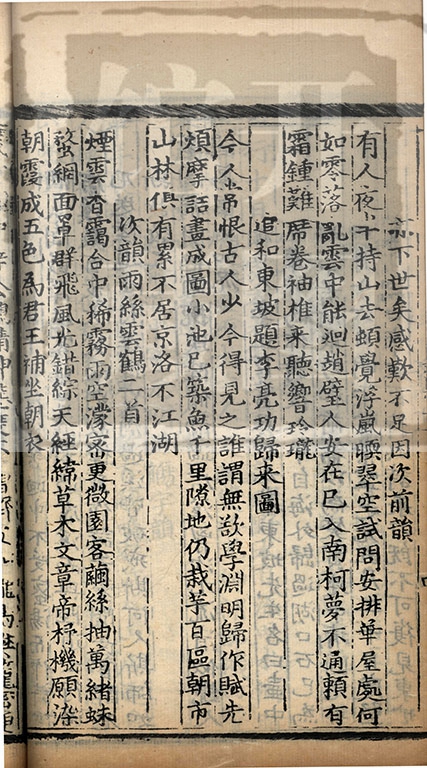 亦下世矣感歎不足因次前韻
有人夜半持山去頓覺浮嵐暝翠空試問安排華屋處何
如零落亂雲中能迴趙璧人安在已入南柯夢不通賴有
霜鍾難席卷袖椎来聽響玲瓏
追和東坡題李亮功歸来圖
今人常恨古人少今得見之誰謂無欲學淵明歸作賦先
煩摩詰畫成圖小池已築魚千里隙地仍栽芋百區朝市
山林俱有累不居京洛不江湖
次韻雨絲雲鶴二首
煙雲杳靄合中稀霧雨空濛密更微園客繭絲抽萬緒蛛
蝥網面罩群飛風光錯綜天經緯草木文章帝杼機願染
朝霞成五色為君王補坐朝衣